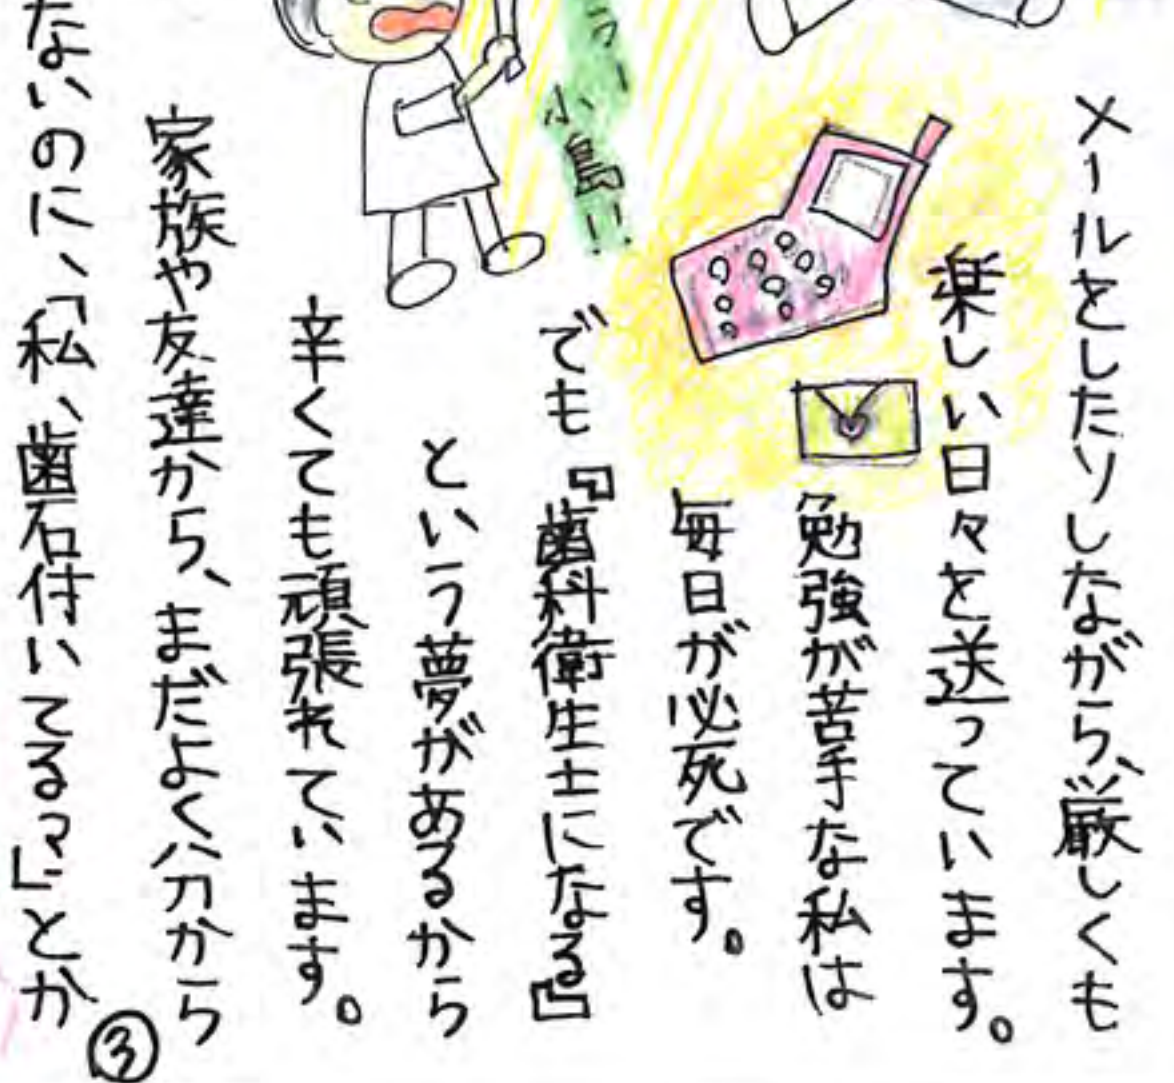 メールをしたりしながら、厳しくも
楽しい日々を送っています。
勉強が苦手な私は
毎日が必死です。
でも『歯科衛生士になる』
という夢があるから
辛くても頑張れています。
家族や友達から、まだよく分から
ないのに、「私、歯石付いてる?」とか
小島!!
③